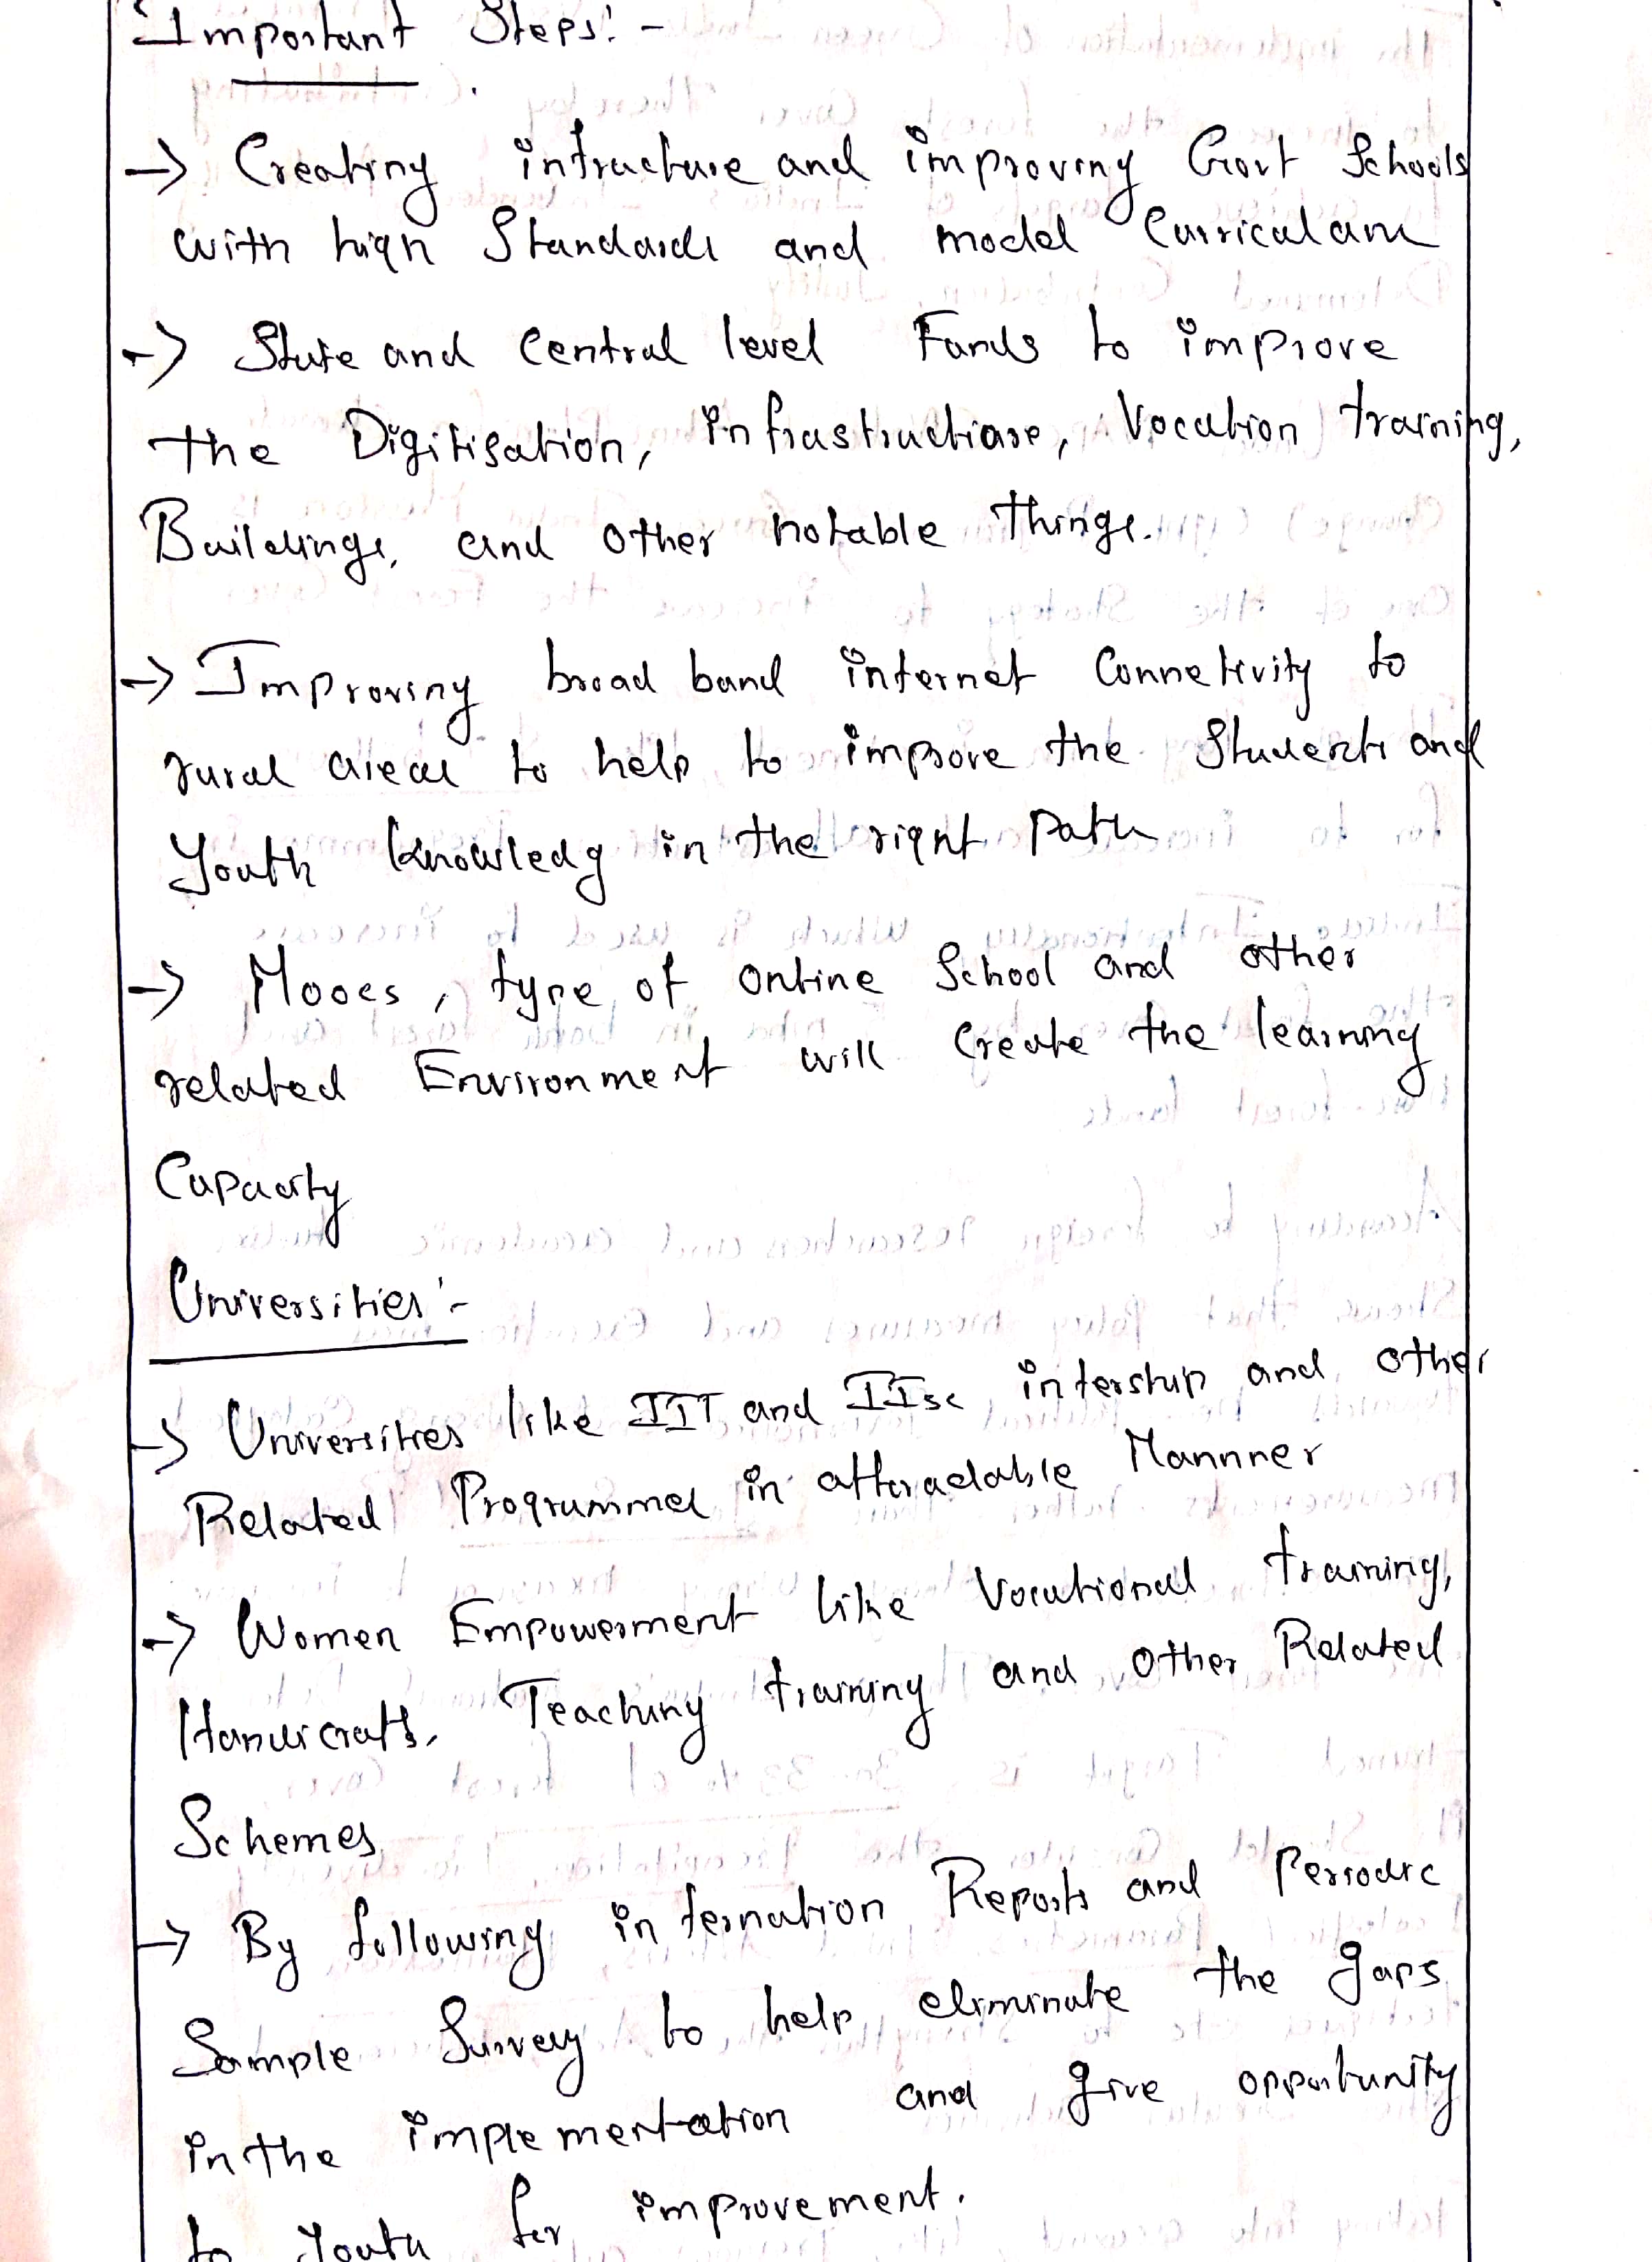 Important Steps:-
→ Creating intructure and improving Govt Schools
with high Standards and model Curriculam
→ State and Central level Funds to improve
the Digitisation, infrastructure, Vocation training,
Buildings, and other notable things.
→ Improving broad band internet Connetivity to
rural areas to help to improve the Students and
Youth knowledg in the right path
→ Moocs, type of online School and other
related Environment will create the learning
Capacity
Universities:-
→ Universities like IIT and IISc intership and other
Related Programmes in afforadable Mannner
→ Women Empowerment like Vocational training,
Handicrafts, Teaching training and other Related
Schemes
→ By following internation Reports and Periodic
Sample Survey to help eliminate the gaps
in the implementation and give opportunity
to Youth for improvement.